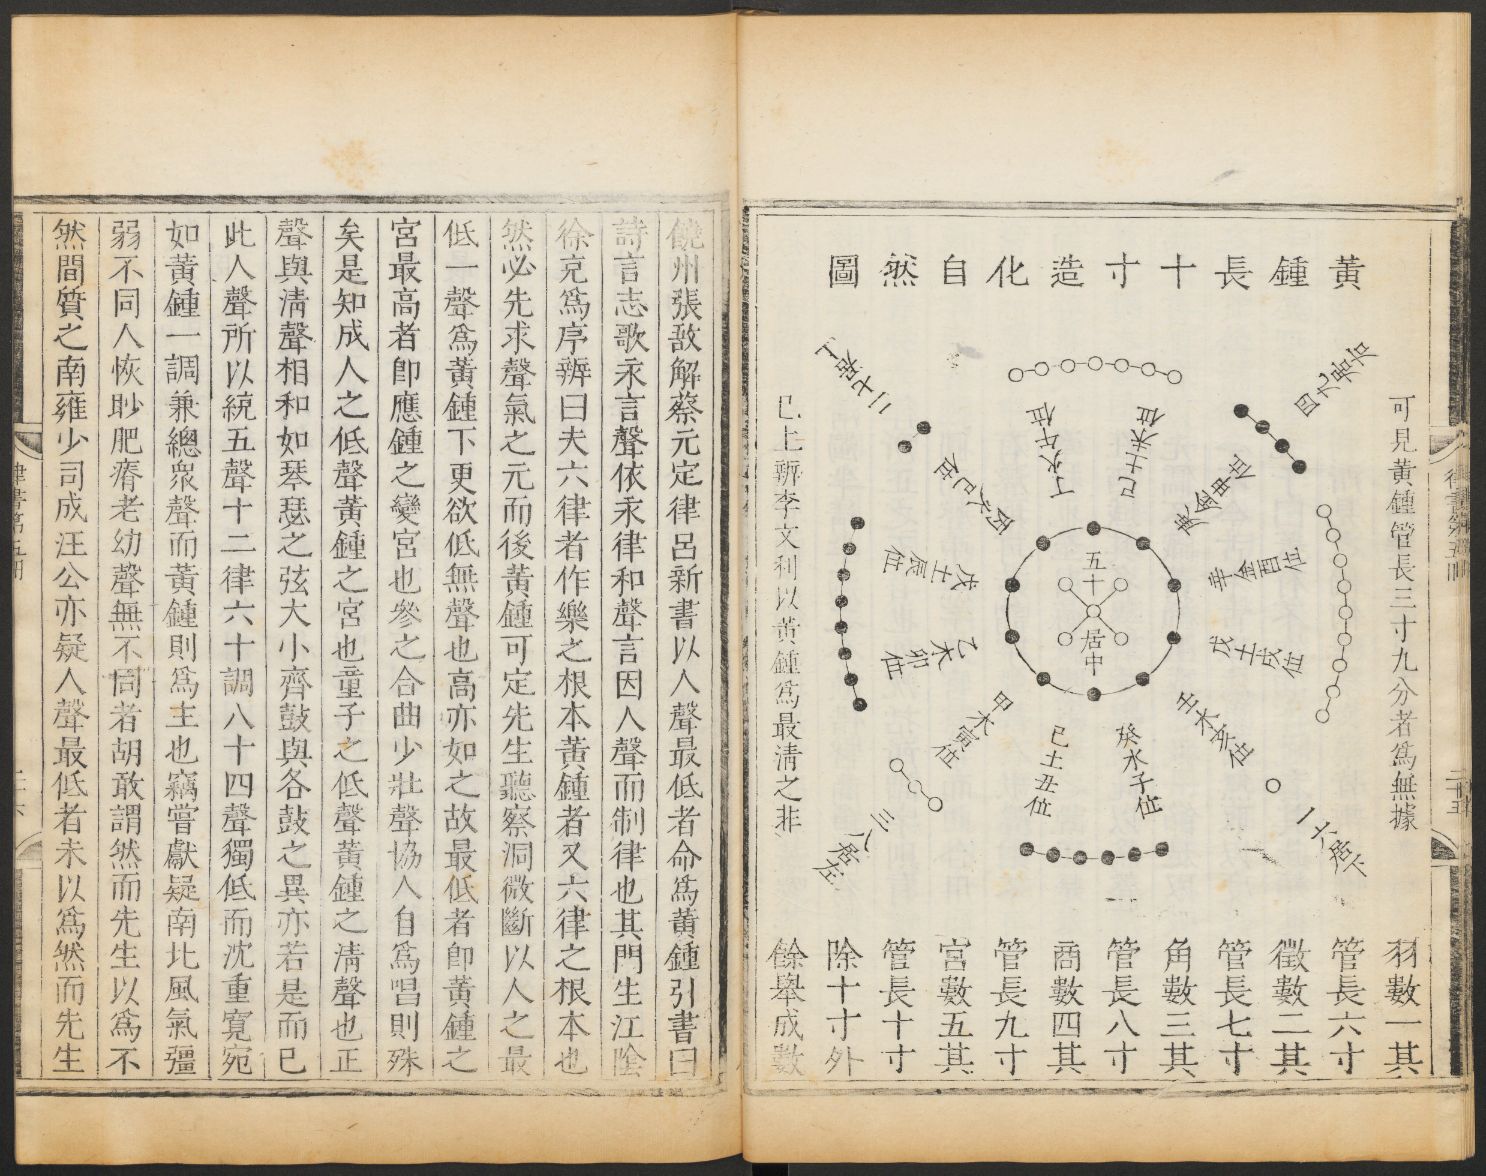 黃鍾長十寸造化自然圖
可見黃鍾管長三寸九分者爲無據
四九居右
二七居上
丁火午位
己土未位
庚金申位
辛金酉位
戊土戌位
壬水亥位
癸水子位
己土丑位
甲木寅位
乙木卯位
戊土辰位
丙火巳位
五十居中
一六居下
三八居左
已上辨李文利以黃鍾爲最淸之非
羽數一其
管長六寸
徵數二其
管長七寸
角數三其
管長八寸
商數四其
管長九寸
宮數五其
管長十寸
除十寸外
餘舉成數
饒州張敔解蔡元定律呂新書以人聲最低者命爲黃鍾引書曰
詩言志歌永言聲依永律和聲言因人聲而制律也其門生江陰
徐充爲序辨曰夫六律者作樂之根本黃鍾者又六律之根本也
然必先求聲氣之元而後黃鍾可定先生聽察洞微斷以人之最
低一聲爲黃鍾下更欲低無聲也高亦如之故最低者卽黃鍾之
宮最高者卽應鍾之變宮也參之合曲少壯聲協人自爲唱則殊
矣是知成人之低聲黃鍾之宮也童子之低聲黃鍾之淸聲也正
聲與淸聲相和如琴瑟之弦大小齊鼓與各鼓之異亦若是而已
此人聲所以統五聲十二律六十調八十四聲獨低而沈重寬宛
如黃鍾一調兼總衆聲而黃鍾則爲主也竊嘗獻疑南北風氣彊
弱不同人恢眇肥瘠老幼聲無不同者胡敢謂然而先生以爲不
然間質之南雍少司成汪公亦疑人聲最低者未以爲然而先生